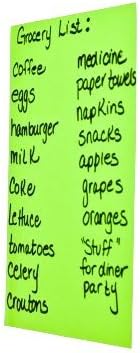 Grocery List:
coffee
eggs
hamburger
milk
coke
lettuce
tomatoes
celery
croutons
medicine
paper towels
napkins
snacks
apples
grapes
oranges
"Stuff"
for diner
party